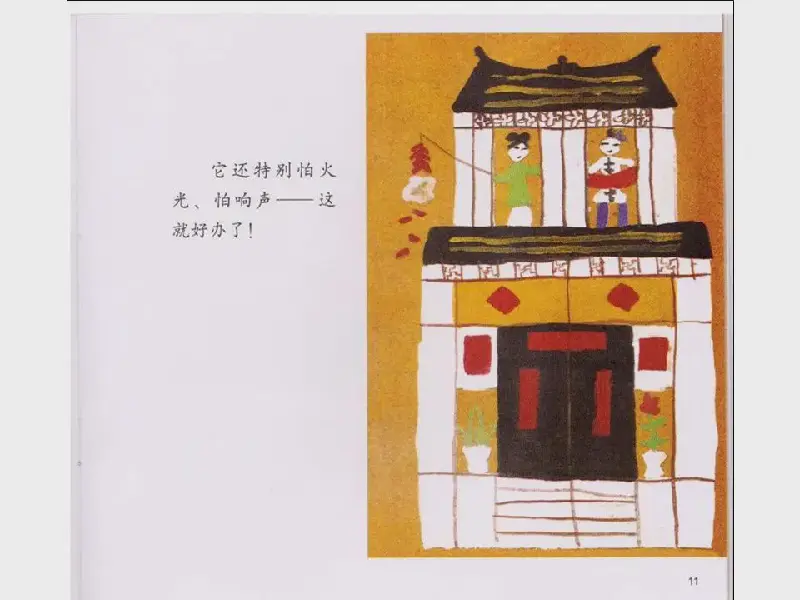 它还特别怕火
光、怕响声——这
就好办了！
11